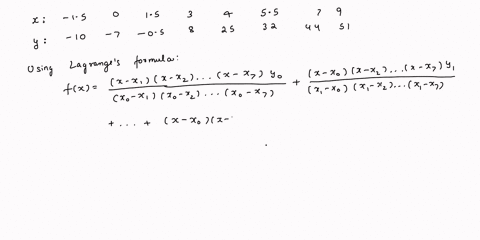 x: -1.5 0 1.5 3 4 5.5 7 9
y: -10 -7 -0.5 8 25 32 44 51
Using Lagrange's formula:
f(x) = \frac{(x-x_1)(x-x_2)...(x-x_7) y_0}{(x_0-x_1)(x_0-x_2)...(x_0-x_7)} + \frac{(x-x_0)(x-x_2)...(x-x_7) y_1}{(x_1-x_0)(x_1-x_2)...(x_1-x_7)}
+ ... + (x-x_0)(x-